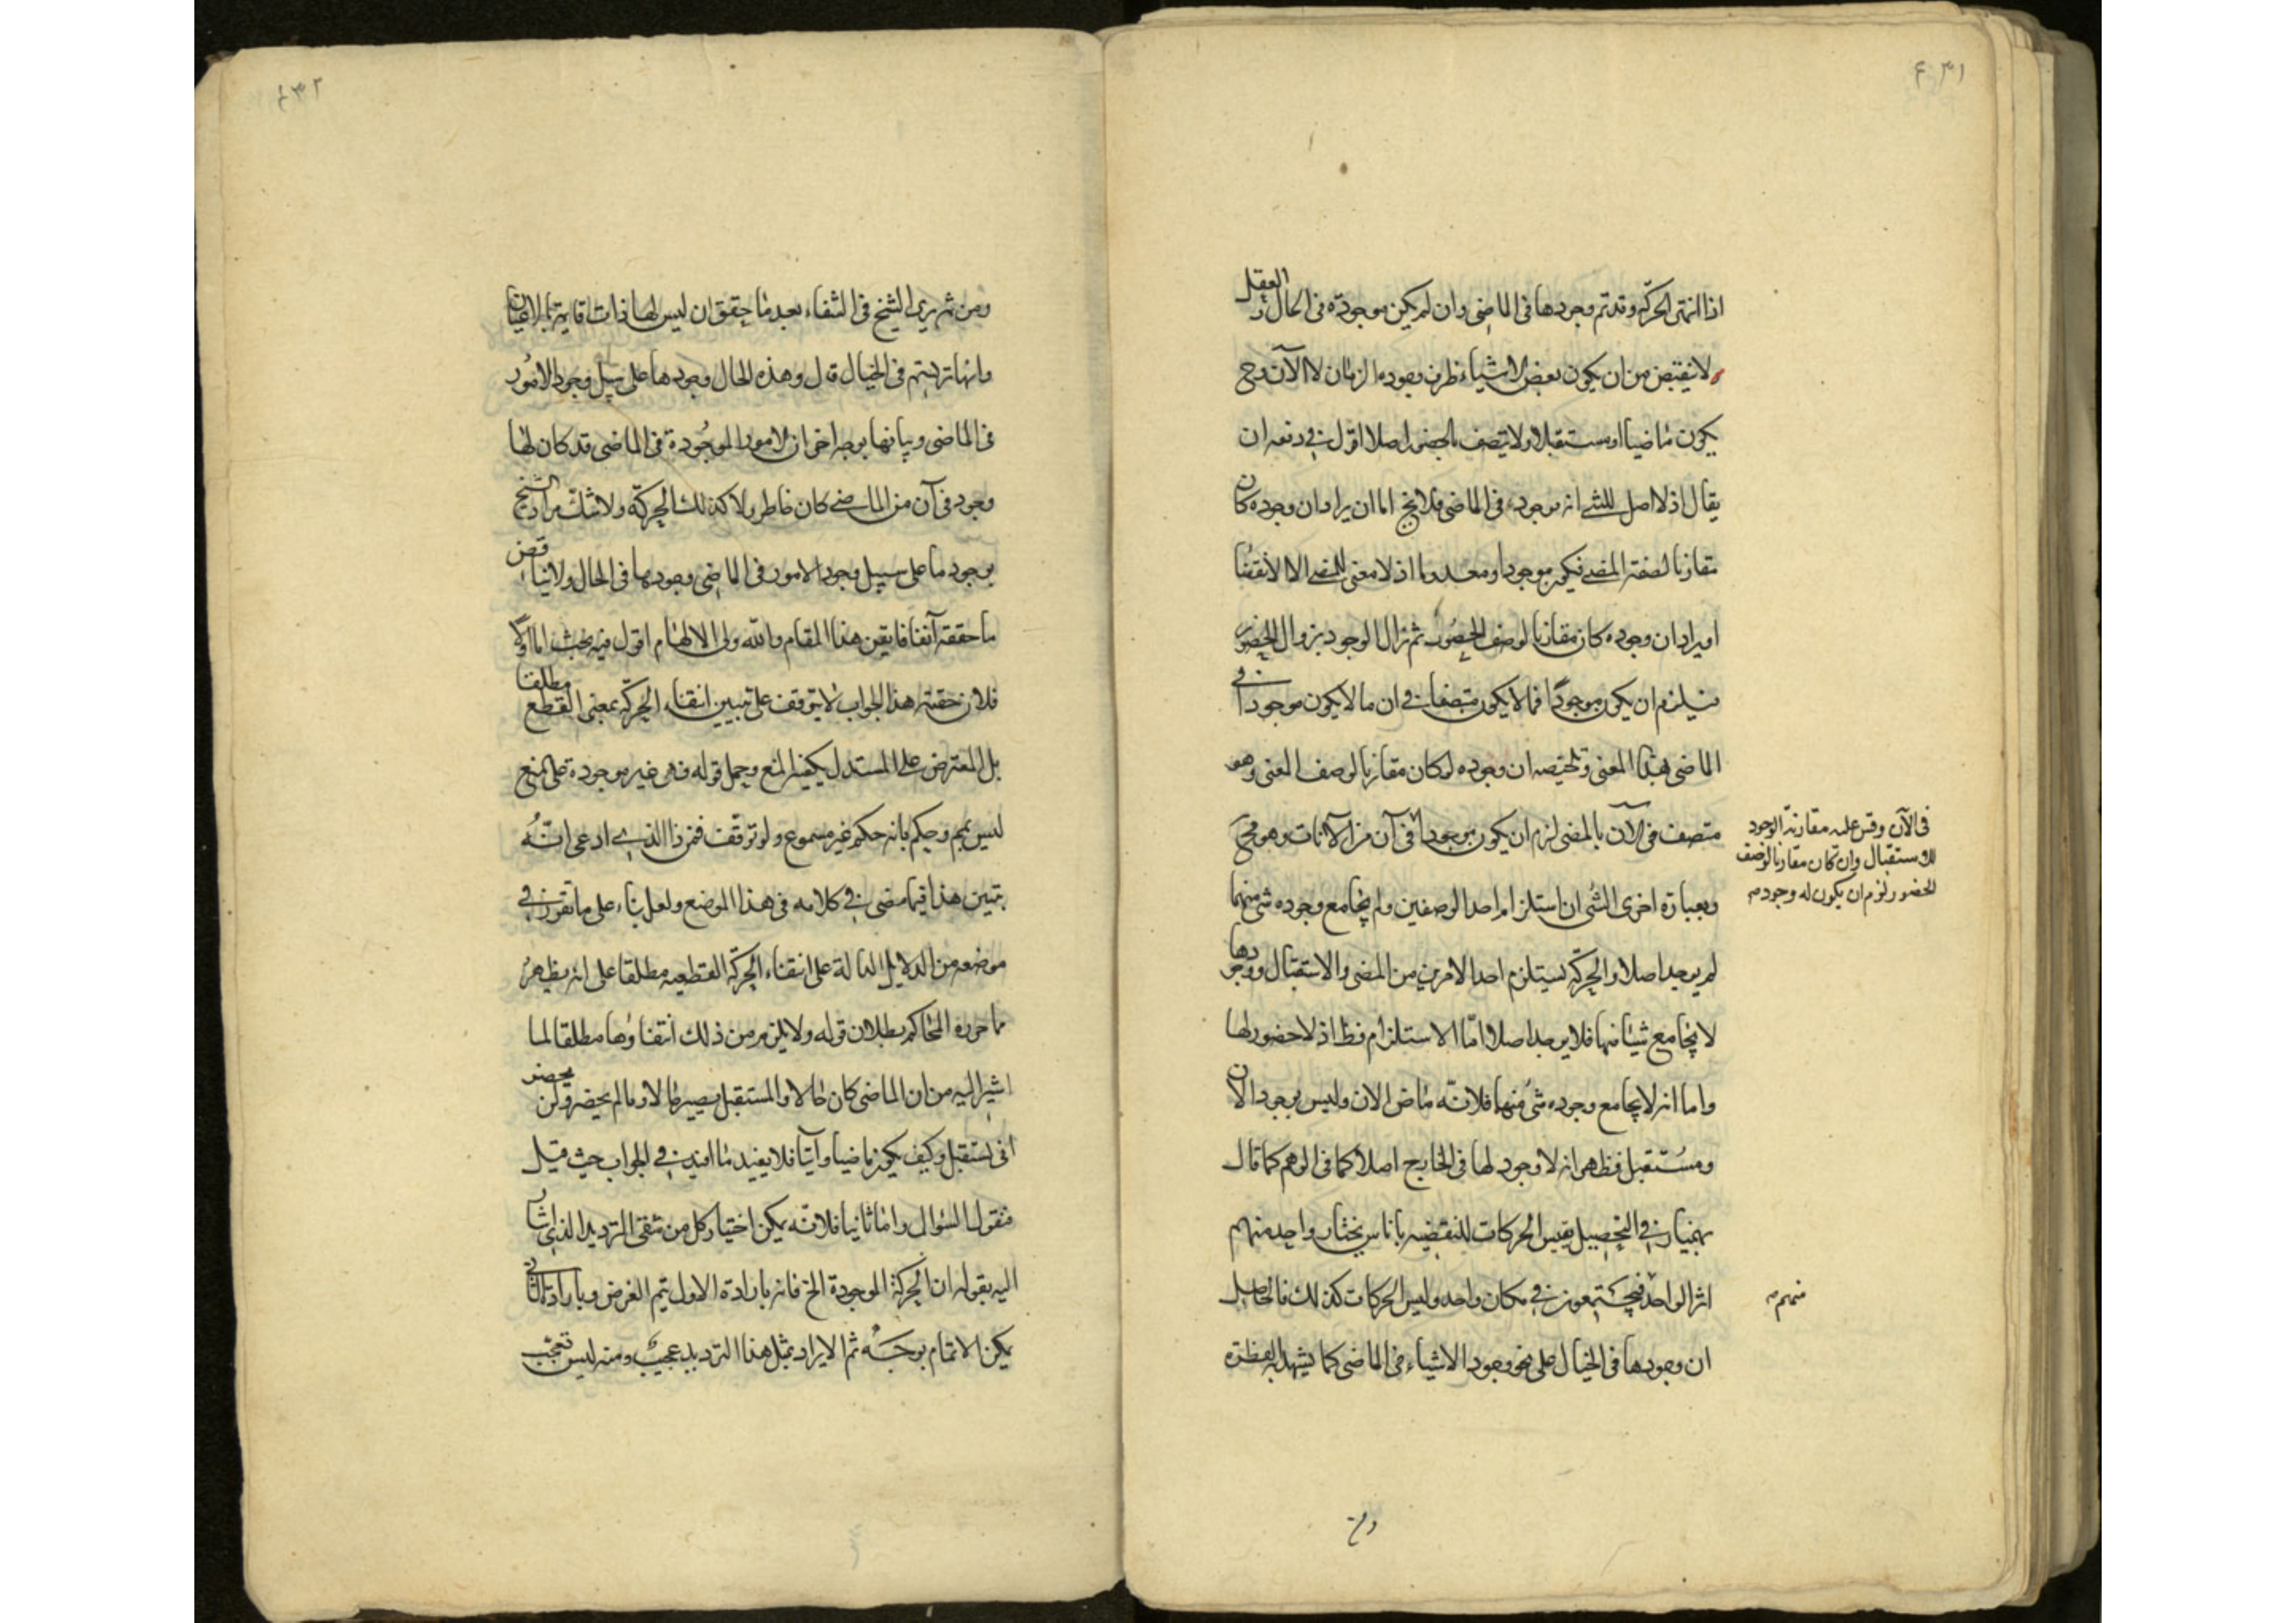 ٤٣١
اذا انتهى الحركة وقد تم وجودها فى الماضى وان لم يكن موجودة فى الحال والعقل
لا ينقبض من ان يكون بعض الاشياء ظرف وجوده الزمان لا الآن وح
يكون ماضيا او مستقبلا ولا يتصف بالحضور اصلا اقول فى دفعه ان
يقال اذ لا اصل للشئ انه موجود فى الماضى فلا يخ اما ان يراد ان وجوده كان
مقارنا لصفة المضى فيكون موجودا ومعدوما اذ لا معنى للمضى الا الانقضا
او يراد ان وجوده كان مقارنا لوصف الحضور ثم زال الوجود بزوال الحضور
فيلزم ان يكون موجودا فما لا يكون متصفا فى ان ما لا يكون موجودا فى
الماضى بهذا المعنى وتلخيصه ان وجوده لو كان مقارنا لوصف المعنى وهو
متصف فى الآن بالمضى لزم ان يكون موجودا فى آن من الآنات وهو مح
فى الآن وقس عليه مقارنة الوجود
للاستقبال وان كان مقارنا لوصف
الحضور لزم ان يكون له وجود مـ
وبعبارة اخرى الشئ ان استلزام احد الوصفين ولم يجامع وجوده شئ منهما
لم يوجد اصلا والحركة يستلزم احد الامرين من المضى والاستقبال ووجودها
لا يجامع شيئا منها فلا يوجد اصلا امّا الاستلزام فظ اذ لا حضور لها
واما انه لا يجامع وجوده شئ منها فلانّه ماض الان وليس بموجود الان
ومستقبل فظهر انه لا وجود لها فى الخارج اصلا كما فى الوهم كما قال
بهمنيار فى التحصيل يقيس الحركات المنقضيه باناس يختار واحد منهم
اثر الواحد فيجتمعون فى مكان واحد وليس الحركات كذلك فالحاصل
منهم مـ
ان وجودها فى الخيال على نحو وجود الاشياء فى الماضى كما يشهد له الفطرة
ومن
٤٣٢
ومن ثم يرى الشيخ فى الشفاء بعد ما حقق ان ليس لها ذات قايمة بالاعيان
وانها ترتسم فى الخيال قال وهذه الحال وجودها على سبيل وجود الامور
فى الماضى ويباينها بوجه اخر ان الامور الموجودة فى الماضى قد كان لها
وجود فى آن من الماضى كان حاضر ولا كذلك الحركة ولا شك مراد الشيخ
بوجودها على سبيل وجود الامور فى الماضى وجودها فى الحال ولا يناقض
ما حققه آنفا فايقن هذا المقام والله ولى الالهام اقول فيه بحث اما اولا
فلان حقيقة هذا الجواب لا يتوقف على تبيين انتفاء الحركة بمعنى القطع مطلقا
بل المعترض على المستدل يكفيه المنع وحمل قوله فهى غير موجودة على منع
ليس بم وحكم بانه حكم غير مسموع ولو توقف فمن ذا الذى ادعى انّه
تبين هذا فيما مضى فى كلامه فى هذا الموضع ولعل بناء على ما تقرر فى
موضعه من الدلايل الدالة على انتفاء الحركة القطعيه مطلقا على انه يظهر
مما حرره المحاكم بطلان قوله ولا يلزم من ذلك انتفاؤها مطلقا لما
اشير اليه من ان الماضى كان حالا والمستقبل يصير حالا وما لم يحضر ولن يحضر
انى يستقبل وكيف يكون ماضيا وآتيا فلا يفيد ما افيد فى الجواب حيث قيل
فنقول السؤال واما ثانيا فلانّه يمكن اختيار كل من شقى الترديد الذى اشار
اليه بقوله ان الحركة الموجودة الخ فانه بارادة الاول يتم الغرض وبارادة الثانى
يمكن الاتمام بوجه ثم الايراد بمثل هذا الترديد عجيب ومنه ليس تعجب